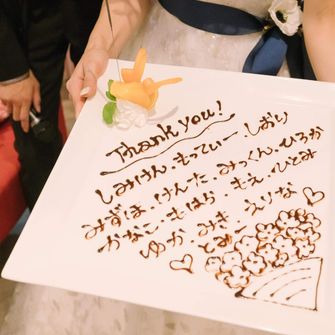 Thank you!
しみけん・もってぃー・しおり
みずほ・けんた・みっくん・ひろか
かなこ・もはら・もえ・ひとみ
ゆか・みき・えりな
とみー